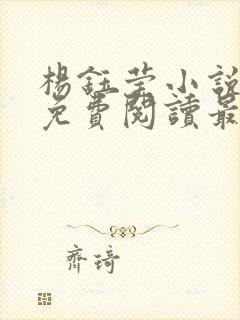 楊鈺莹小說
免費閱讀最
齊琦